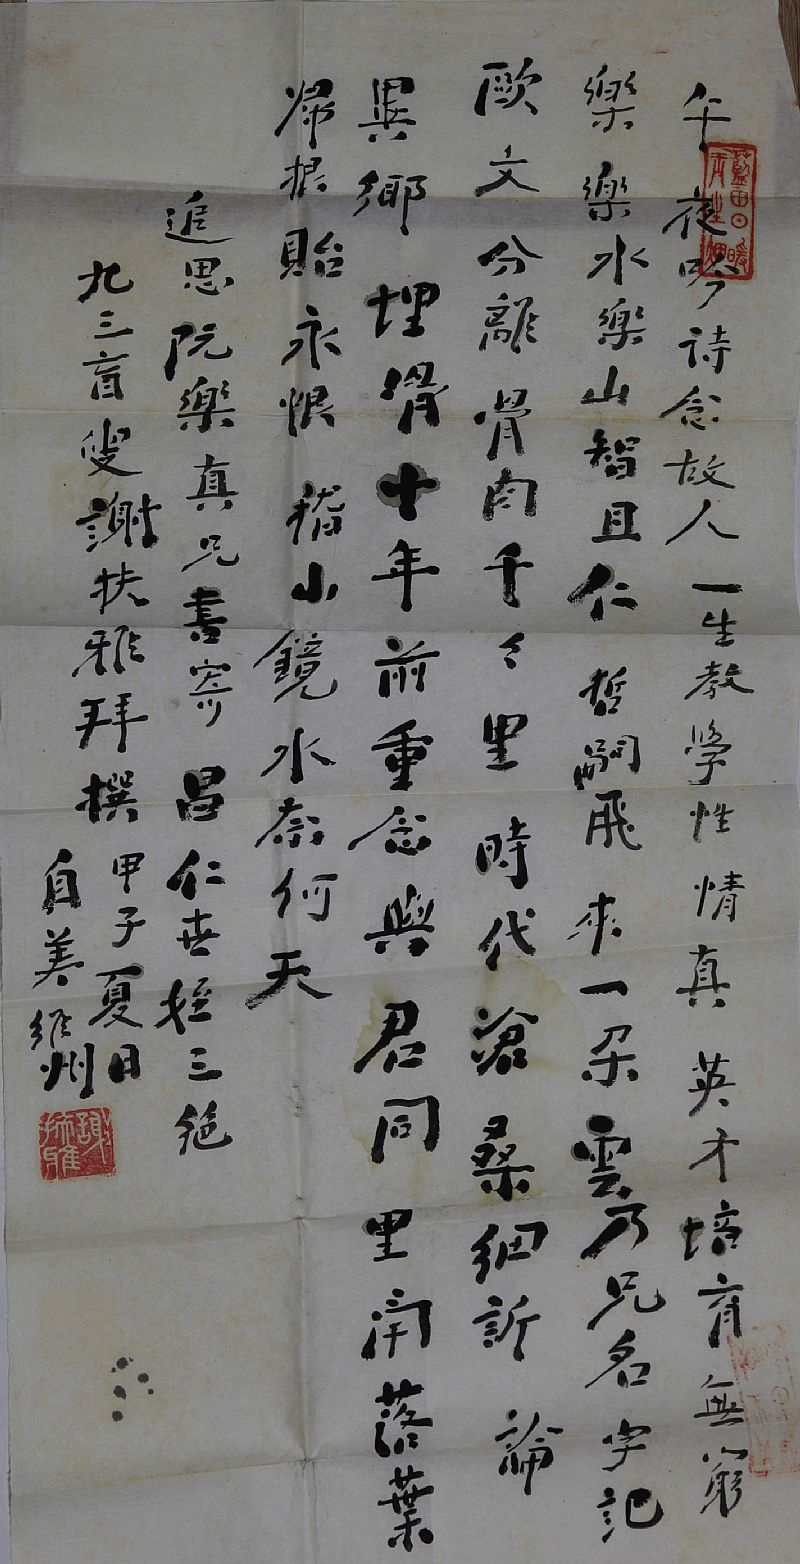 午夜吟詩念故人一生教學性情真英才培育無窮
樂樂水樂山智且仁哲嗣飛來一朵雲乃兄名字記
歐文分離骨肉千々里時代滄桑細訴論
異鄉埋骨十年前重念與君同里閈落葉
歸根貽永恨稽山鏡水奈何天
追思阮樂真兄書寄昌仁世姪三絕
九三盲叟謝扶雅拜撰甲子夏日
自美維州
藍田日暖
謝扶雅